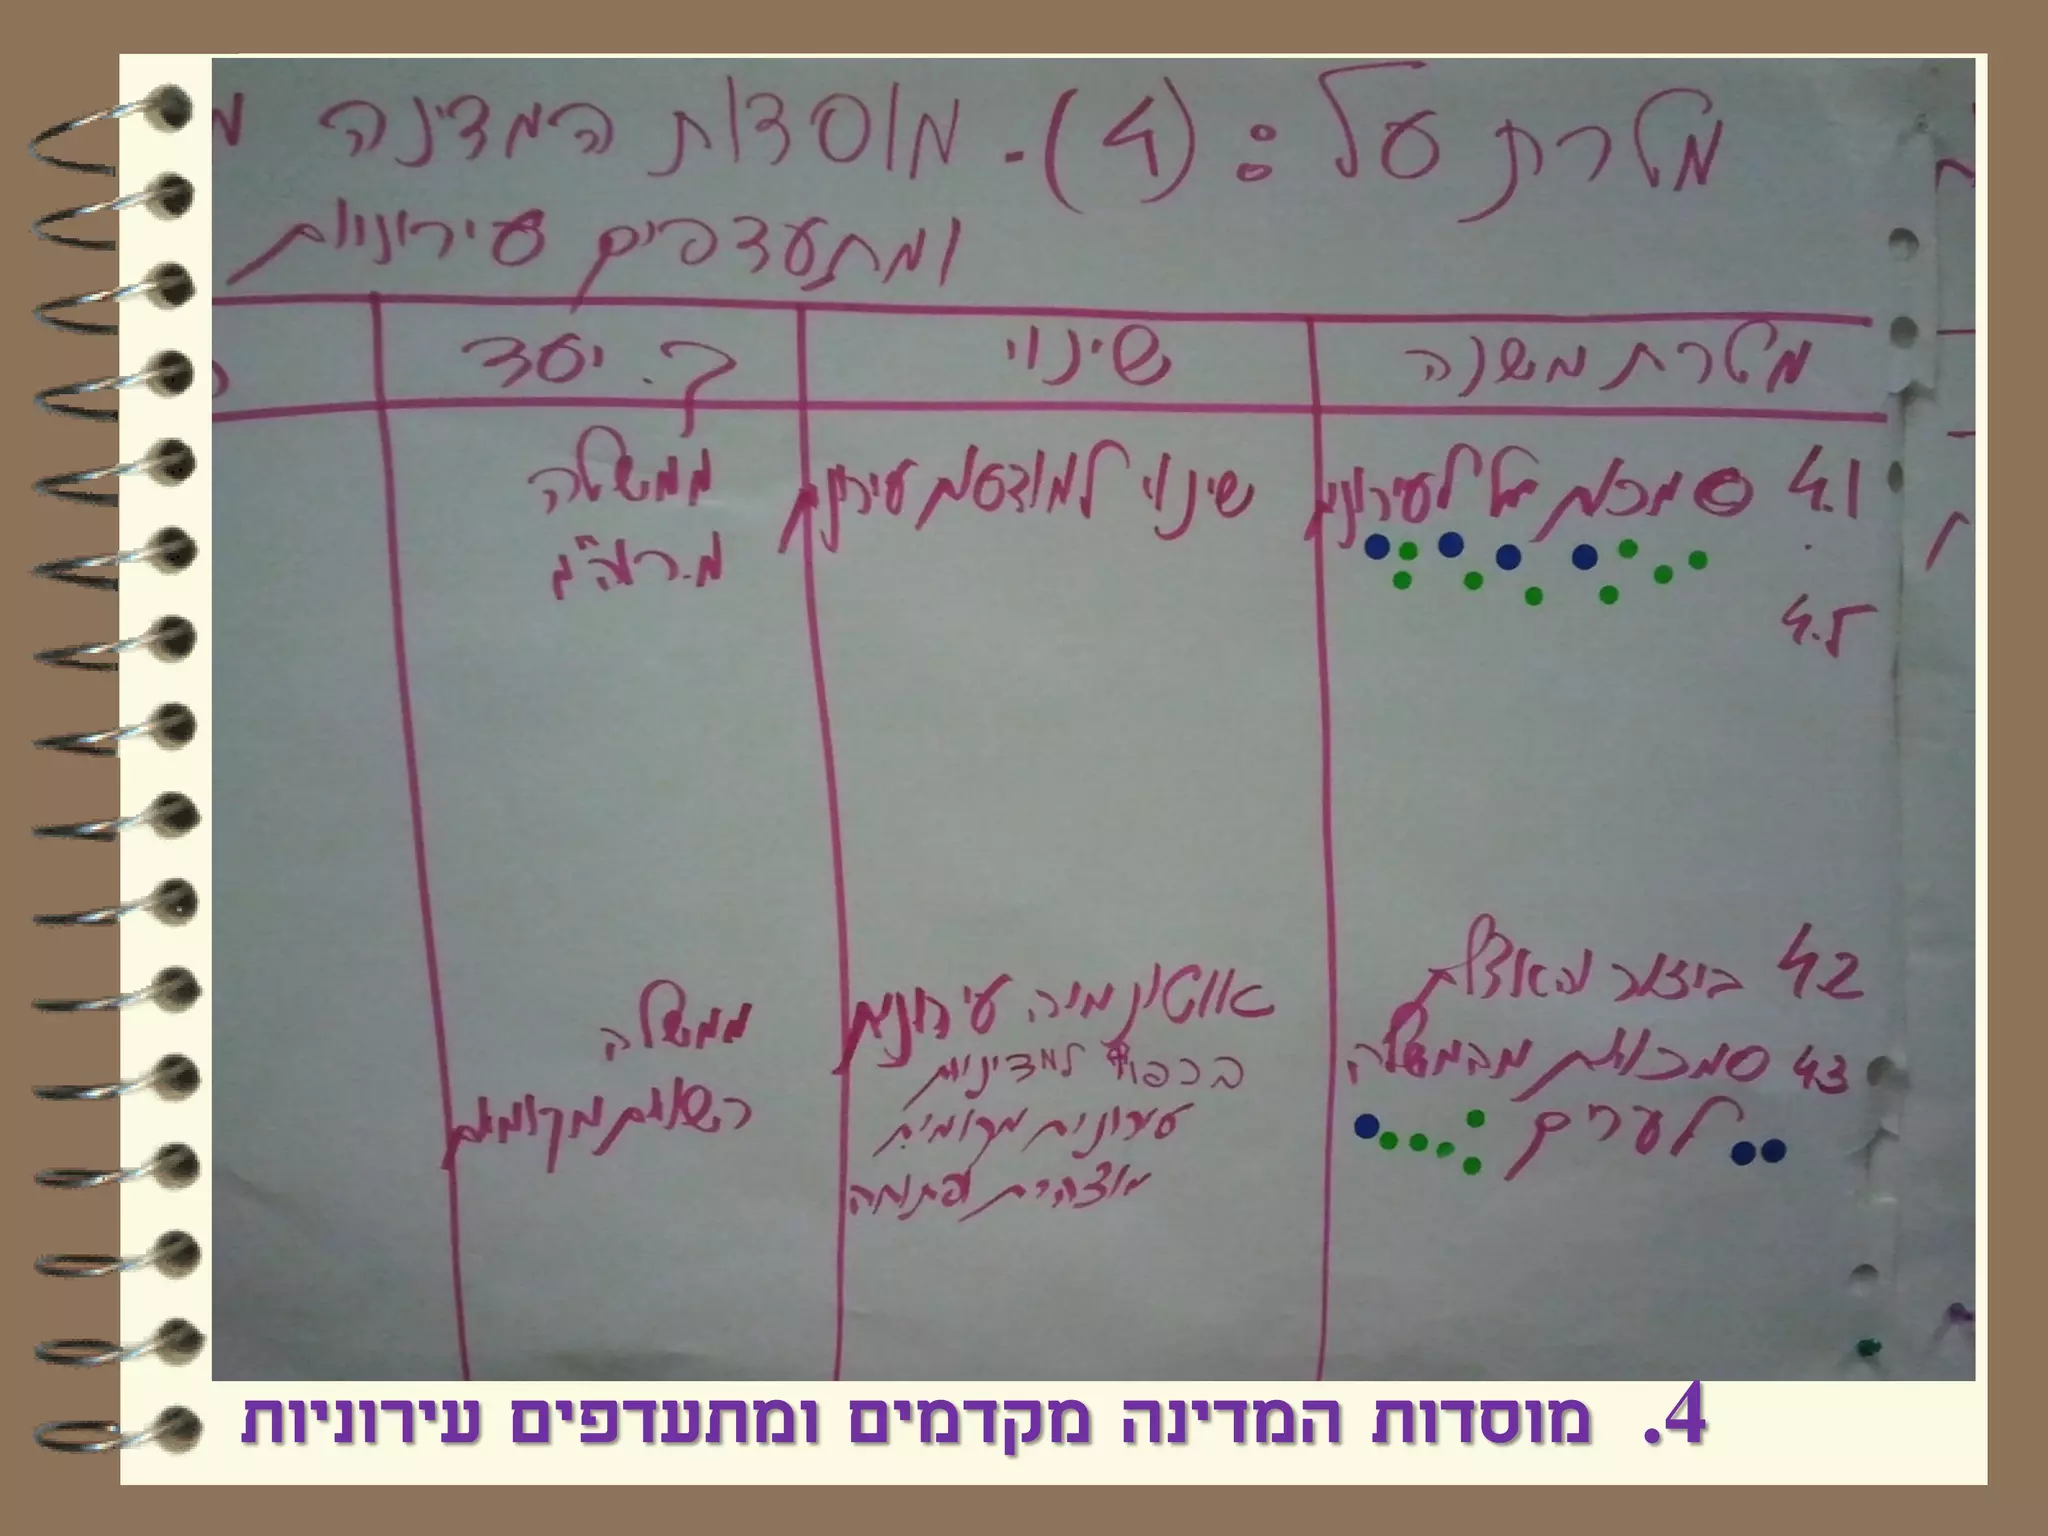 מטרת על : (4). מוסדות המדינה מ
ומתעדפים עירוניות
מטרת משנה
שינוי
ק. יעד
4.1 סמכות על לעירוניות
שינוי למודעות עירונית
ממשלה
מ.רוה"מ
4.5
4.2 ביזור והאצלת
4.3 סמכויות מהממשלה
לערים
אוטונומיה עירונית
בכפוף למדיניות
עירונית מקומית
מוצהרת ופתוחה
ממשלה
רשויות מקומיות
4. מוסדות המדינה מקדמים ומתעדפים עירוניות